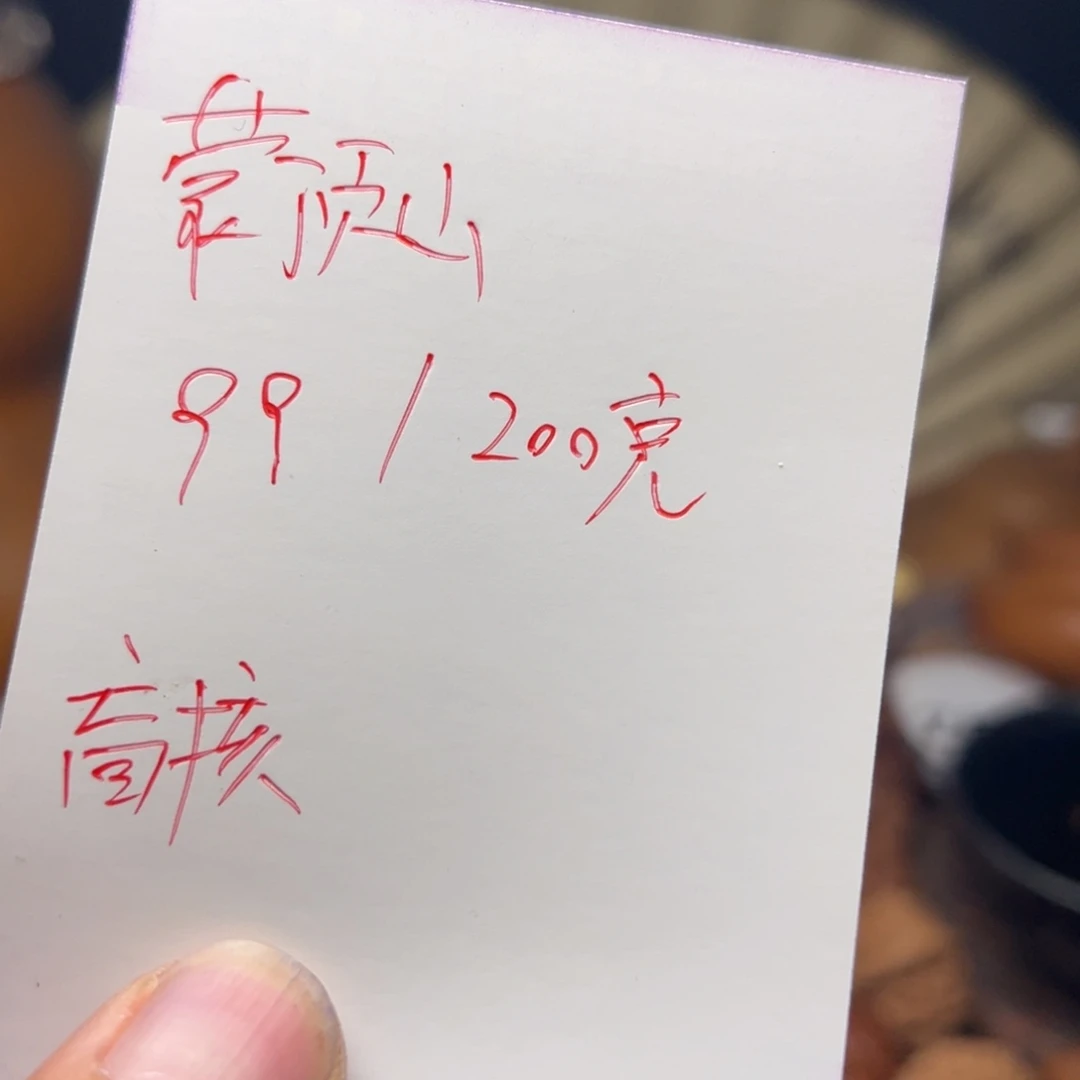 蒙顶山
99 / 200克
高核